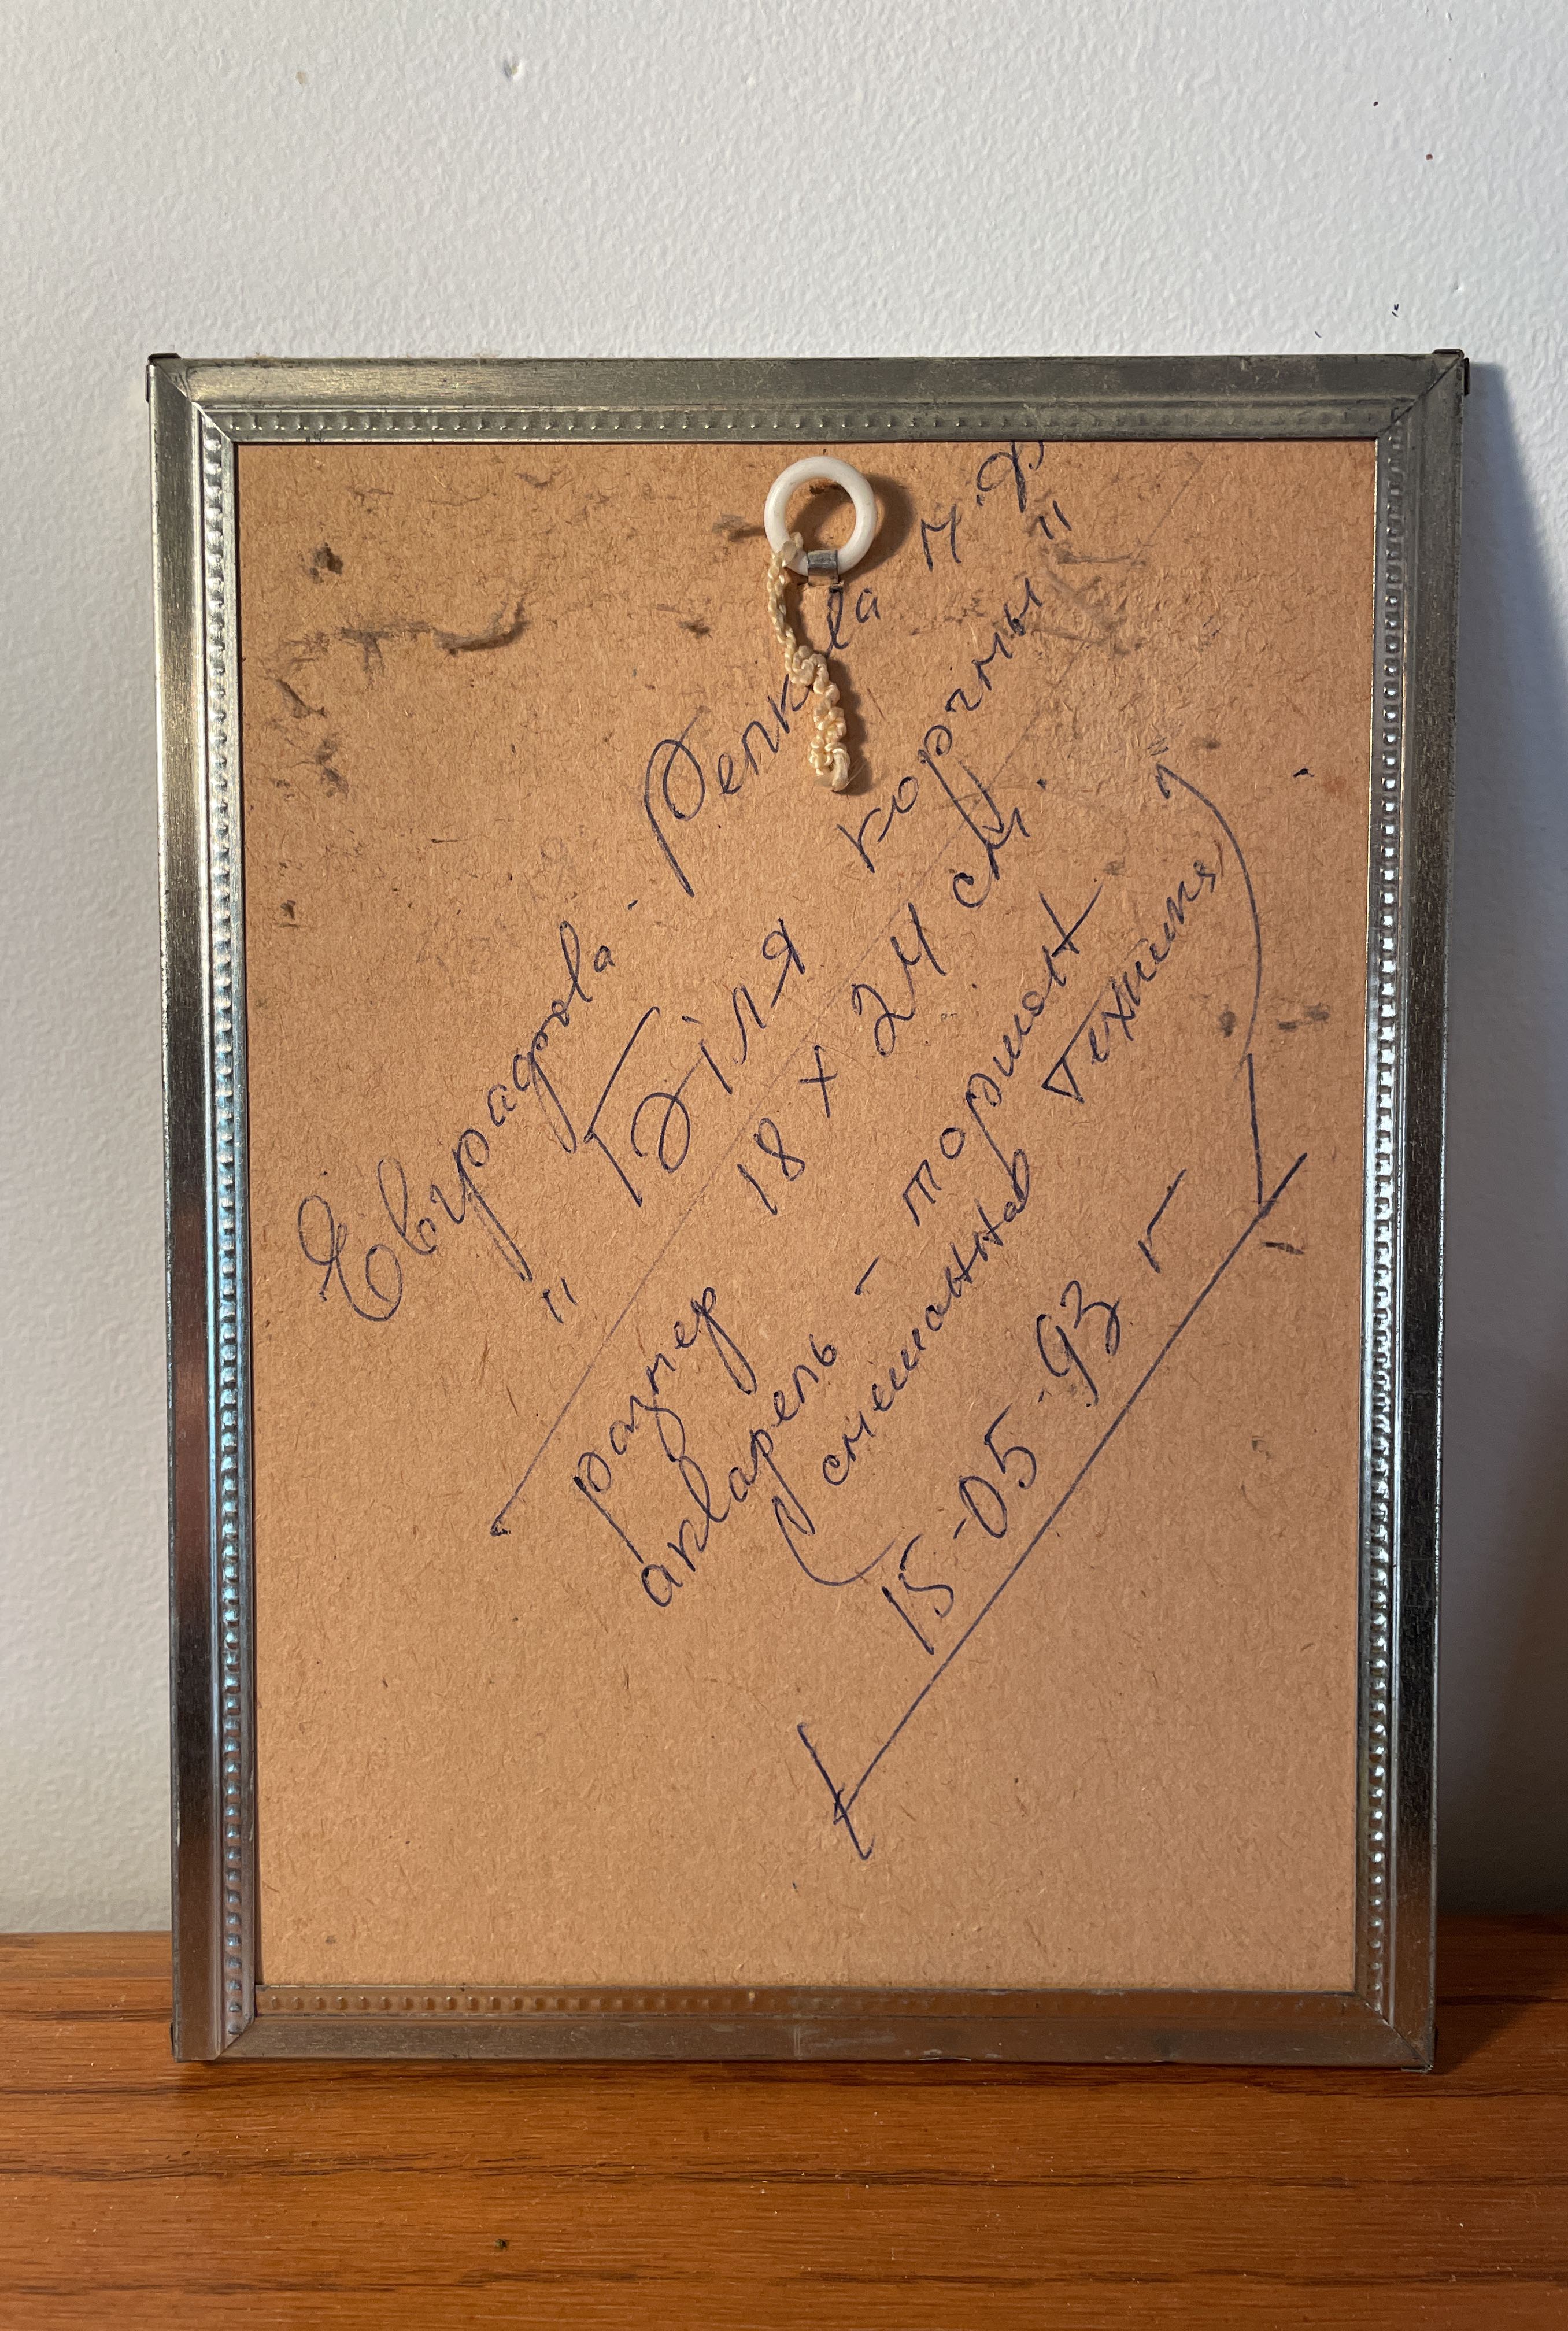 Евграфова - Репкова М.Ф
"Біля корчмы"
размер 18 х 24 см.
акварель - торшон
(смешанная техника)
15-05-93 г